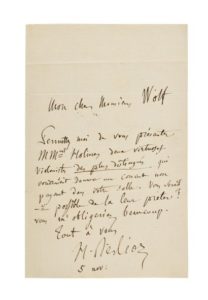 Mon cher Monsieur Wolf
Permettez moi de vous présenter
MMrs Holmes deux virtuoses
violonistes des plus distingués qui
voudraient donner un concert non
payant dans votre salle. Vous serait
il possible de la leur prêter?
vous m'obligeriez beaucoup.
Tout à vous
H. Berlioz
5 nov.